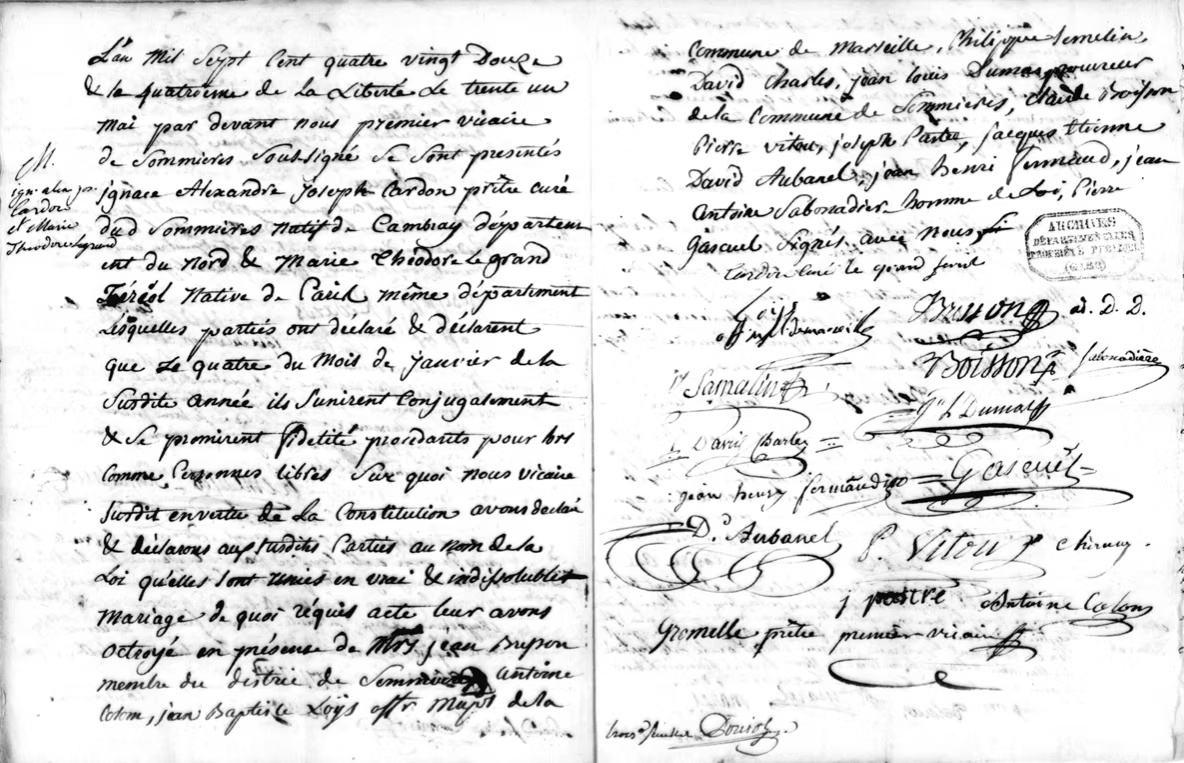 L'an Mil Sept Cent quatre vingt Douze
& la quatrieme de la Liberté Le trente un
Mai par devant nous premier vicaire
de Sommieres Soussigné Se Sont presentés
ignace Alexandre joseph Cardon prêtre curé
dud Sommieres Natif de Cambray départem
ent du Nord & Marie Théodore Le grand
Native de même département
Lesquelles parties ont déclaré & déclarent
que Le quatre du Mois de janvier de la
Susdite année ils S'unirent Conjugalement
& Se promirent fidelité procedants pour lors
Comme Personnes libres Sur quoi nous vicaire
Susdit en vertu de La Constitution avons declaré
& déclarons aux Susdites Parties au Nom de la
Loi qu'elles Sont unies en vrai & indissoluble
Mariage de quoi réquis acte leur avons
Octroyé en présense de Mrs jean Brisson
membre du district de Sommieres Antoine
Colom, jean Baptiste Loÿs offr Majol de la
M.
Cardon
et Marie
Theodore Legrand
Commune de Marseille, Philippe Semelin
David Charles, jean Louis Dumas procureur
de la Commune de Sommieres, Claude Boisson
Pierre vitou, joseph Pastre, jacques Etienne
David Aubanel, jean henri fermaud, jean
Antoine Sabonadier homme de Loi, Pierre
Gascuel Signés avec Nous
Cardon Curé le grand
ARCHIVES
DÉPARTEMENTALES
PROPRIÉTÉ PUBLIQUE
(GARD)
Loÿs Brisson ad. D. D.
Samalin Boisson Sabonadière
Dumas
David Charles
jean henry fermaud Gascuel
Dd Aubanel P. Vitou Chirurg.
j pastre Antoine Colom
Gromelle prêtre premier vicaire